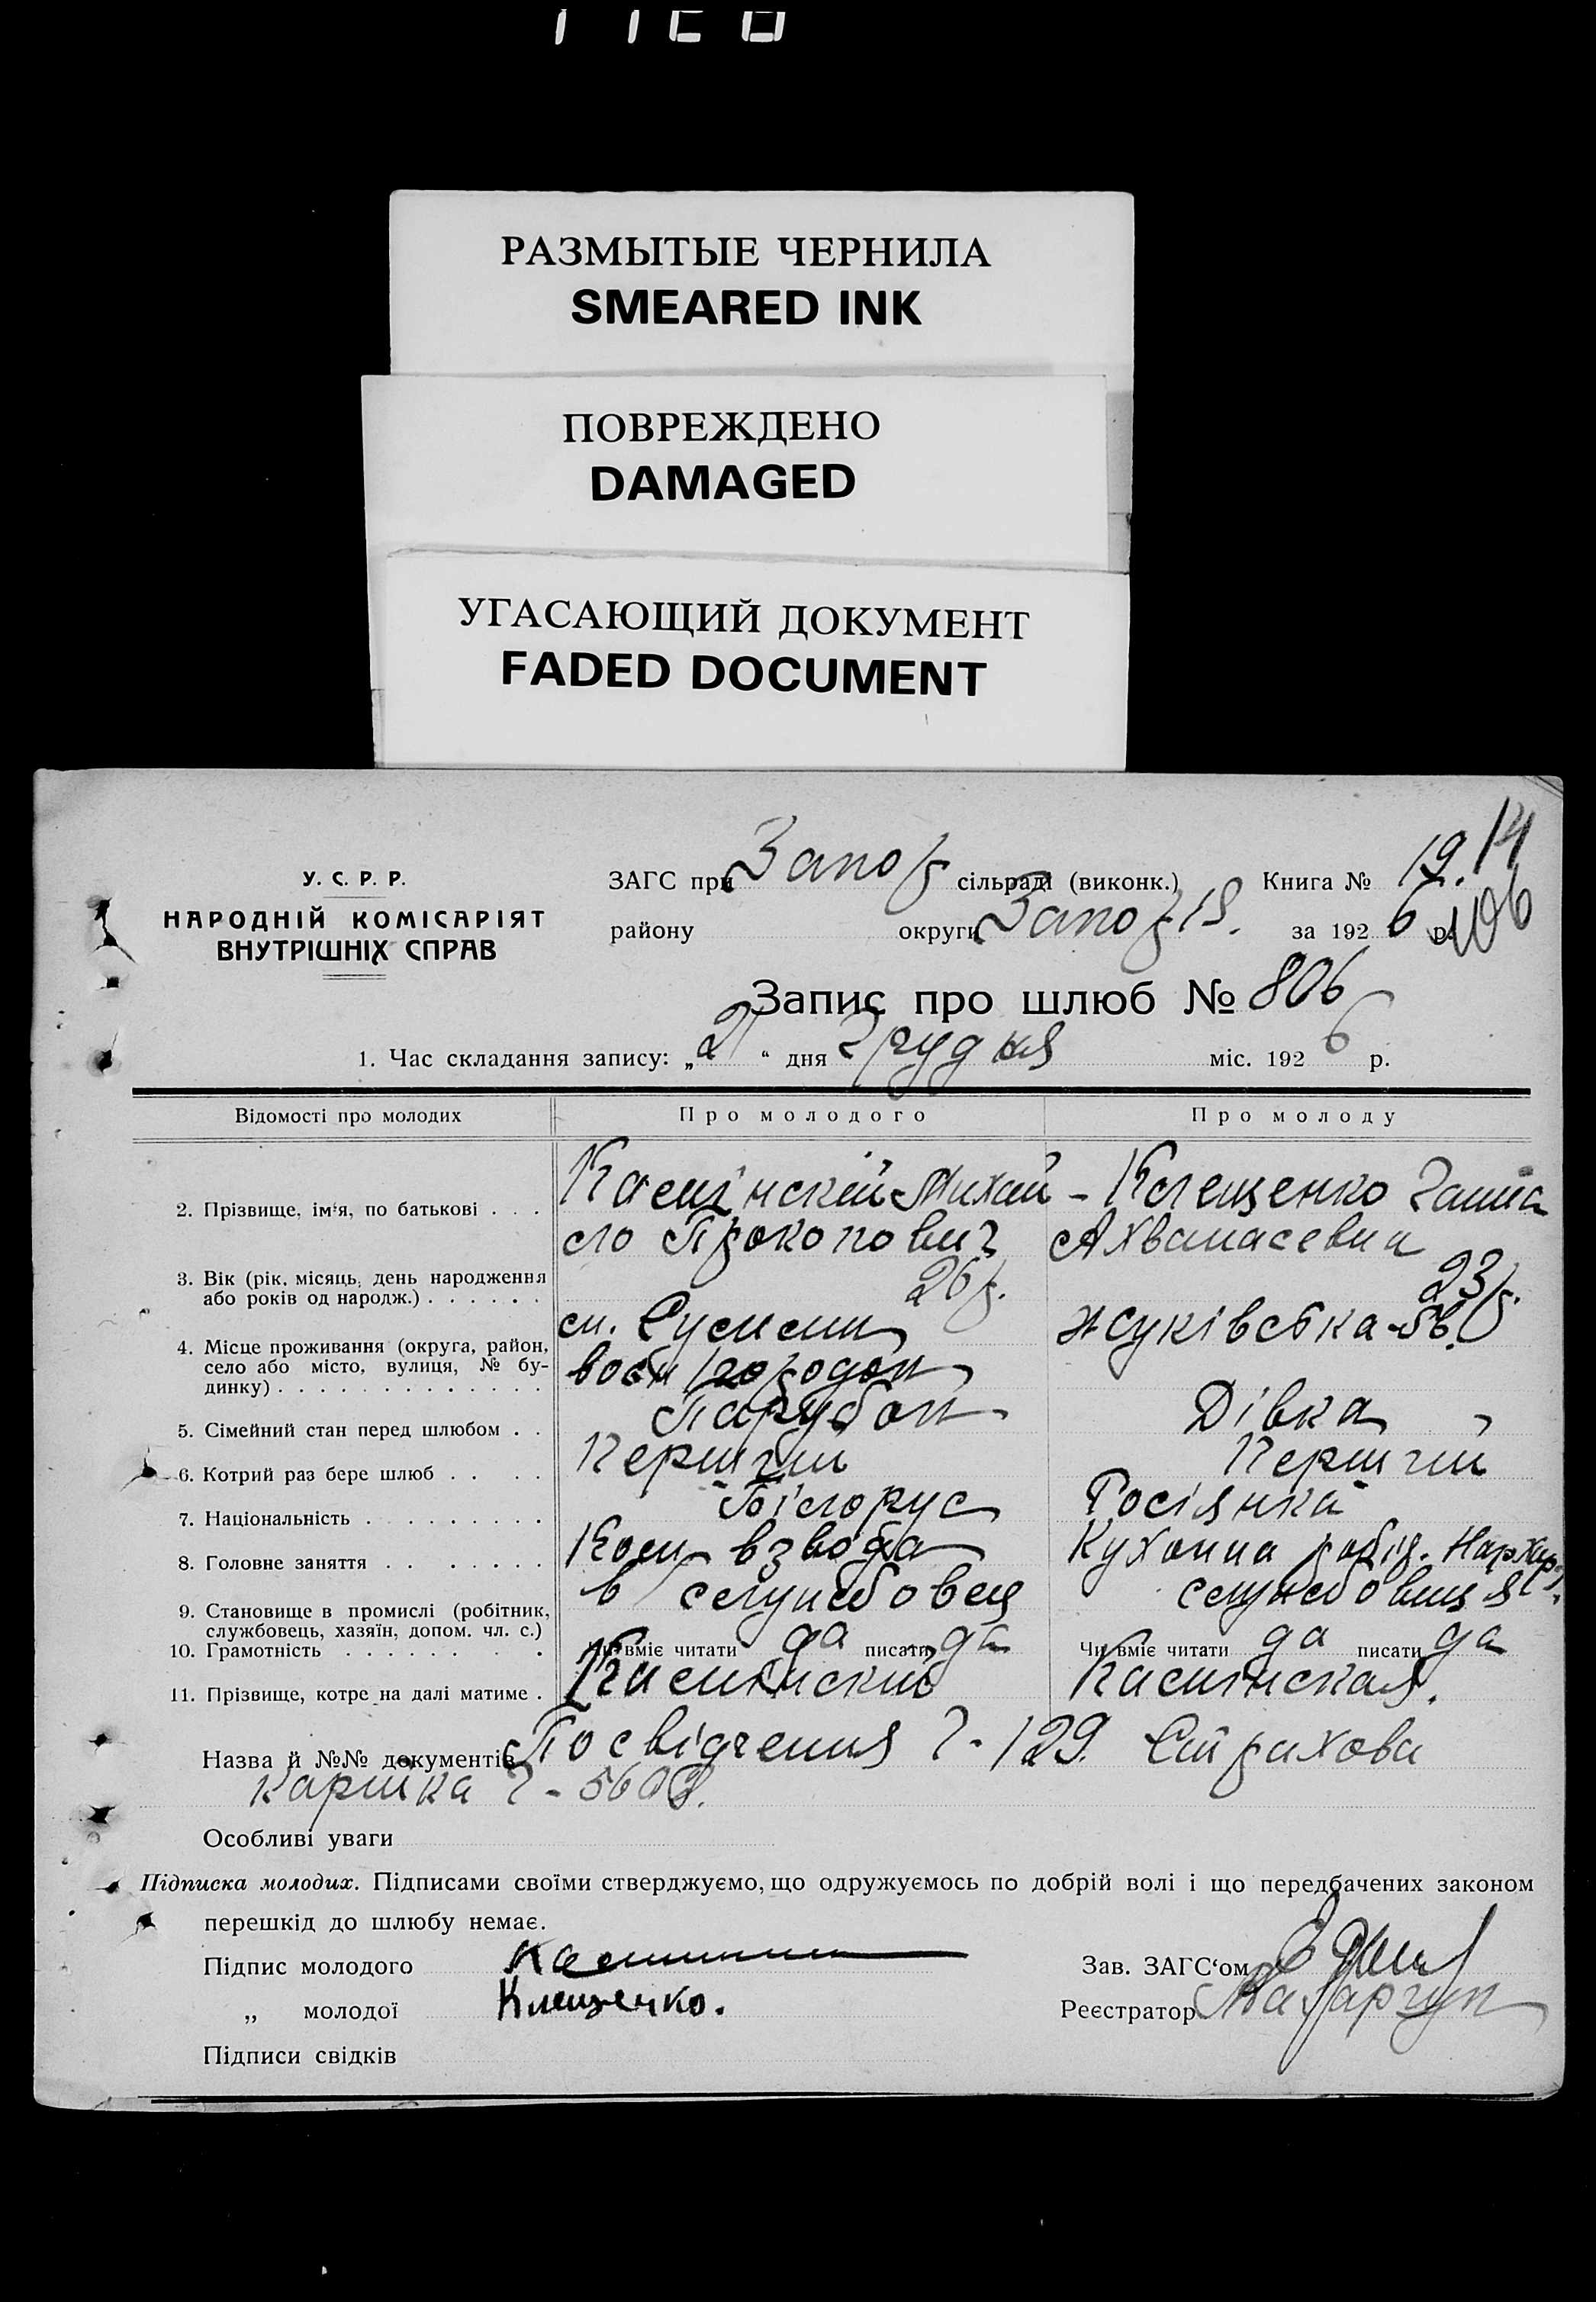 РАЗМЫТЫЕ ЧЕРНИЛА
SMEARED INK
ПОВРЕЖДЕНО
DAMAGED
УГАСАЮЩИЙ ДОКУМЕНТ
FADED DOCUMENT
У. С. Р. Р.
НАРОДНІЙ КОМІСАРІЯТ
ВНУТРІШНІХ СПРАВ
ЗАГС при Запор сільраді (виконк.) Книга № 19. 14
району округи Запоріз. за 1926 р. 106
Запис про шлюб № 806
1. Час складання запису: „2“ дня Грудня міс. 1926 р.
Відомості про молодих Про молодого Про молоду
2. Прізвище, ім'я, по батькові . . . Михай- Клещенко Ганна
ло Прокопович Ахванасевна
3. Вік (рік, місяць, день народження або років од народж.) . . . . . . 26 р. 23 р.
4. Місце проживання (округа, район, село або місто, вулиця, № будинку) . . . . . . . . . . . . . Жуківська
5. Сімейний стан перед шлюбом . . Парубок Дівка
6. Котрий раз бере шлюб . . . . Перший Перший
7. Національність . . . . . . . . . Білорус Росіянка
8. Головне заняття . . . . . . . Ком взвода Кухонна робіц. Нархар.
9. Становище в промислі (робітник, службовець, хазяїн, допом. чл. с.) службовец службовиця
10. Грамотність . . . . . . . . Чи вміє читати да писати да Чи вміє читати да писати да
11. Прізвище, котре на далі матиме .
Назва й №№ документів Посвідчення Ч-129. Страхова
картка Ч-
Особливі уваги
Підписка молодих. Підписами своїми стверджуємо, що одружуємось по добрій волі і що передбачених законом
перешкід до шлюбу немає.
Підпис молодого Зав. ЗАГС‘ом
„ молодої Клещенко. Реєстратор
Підписи свідків